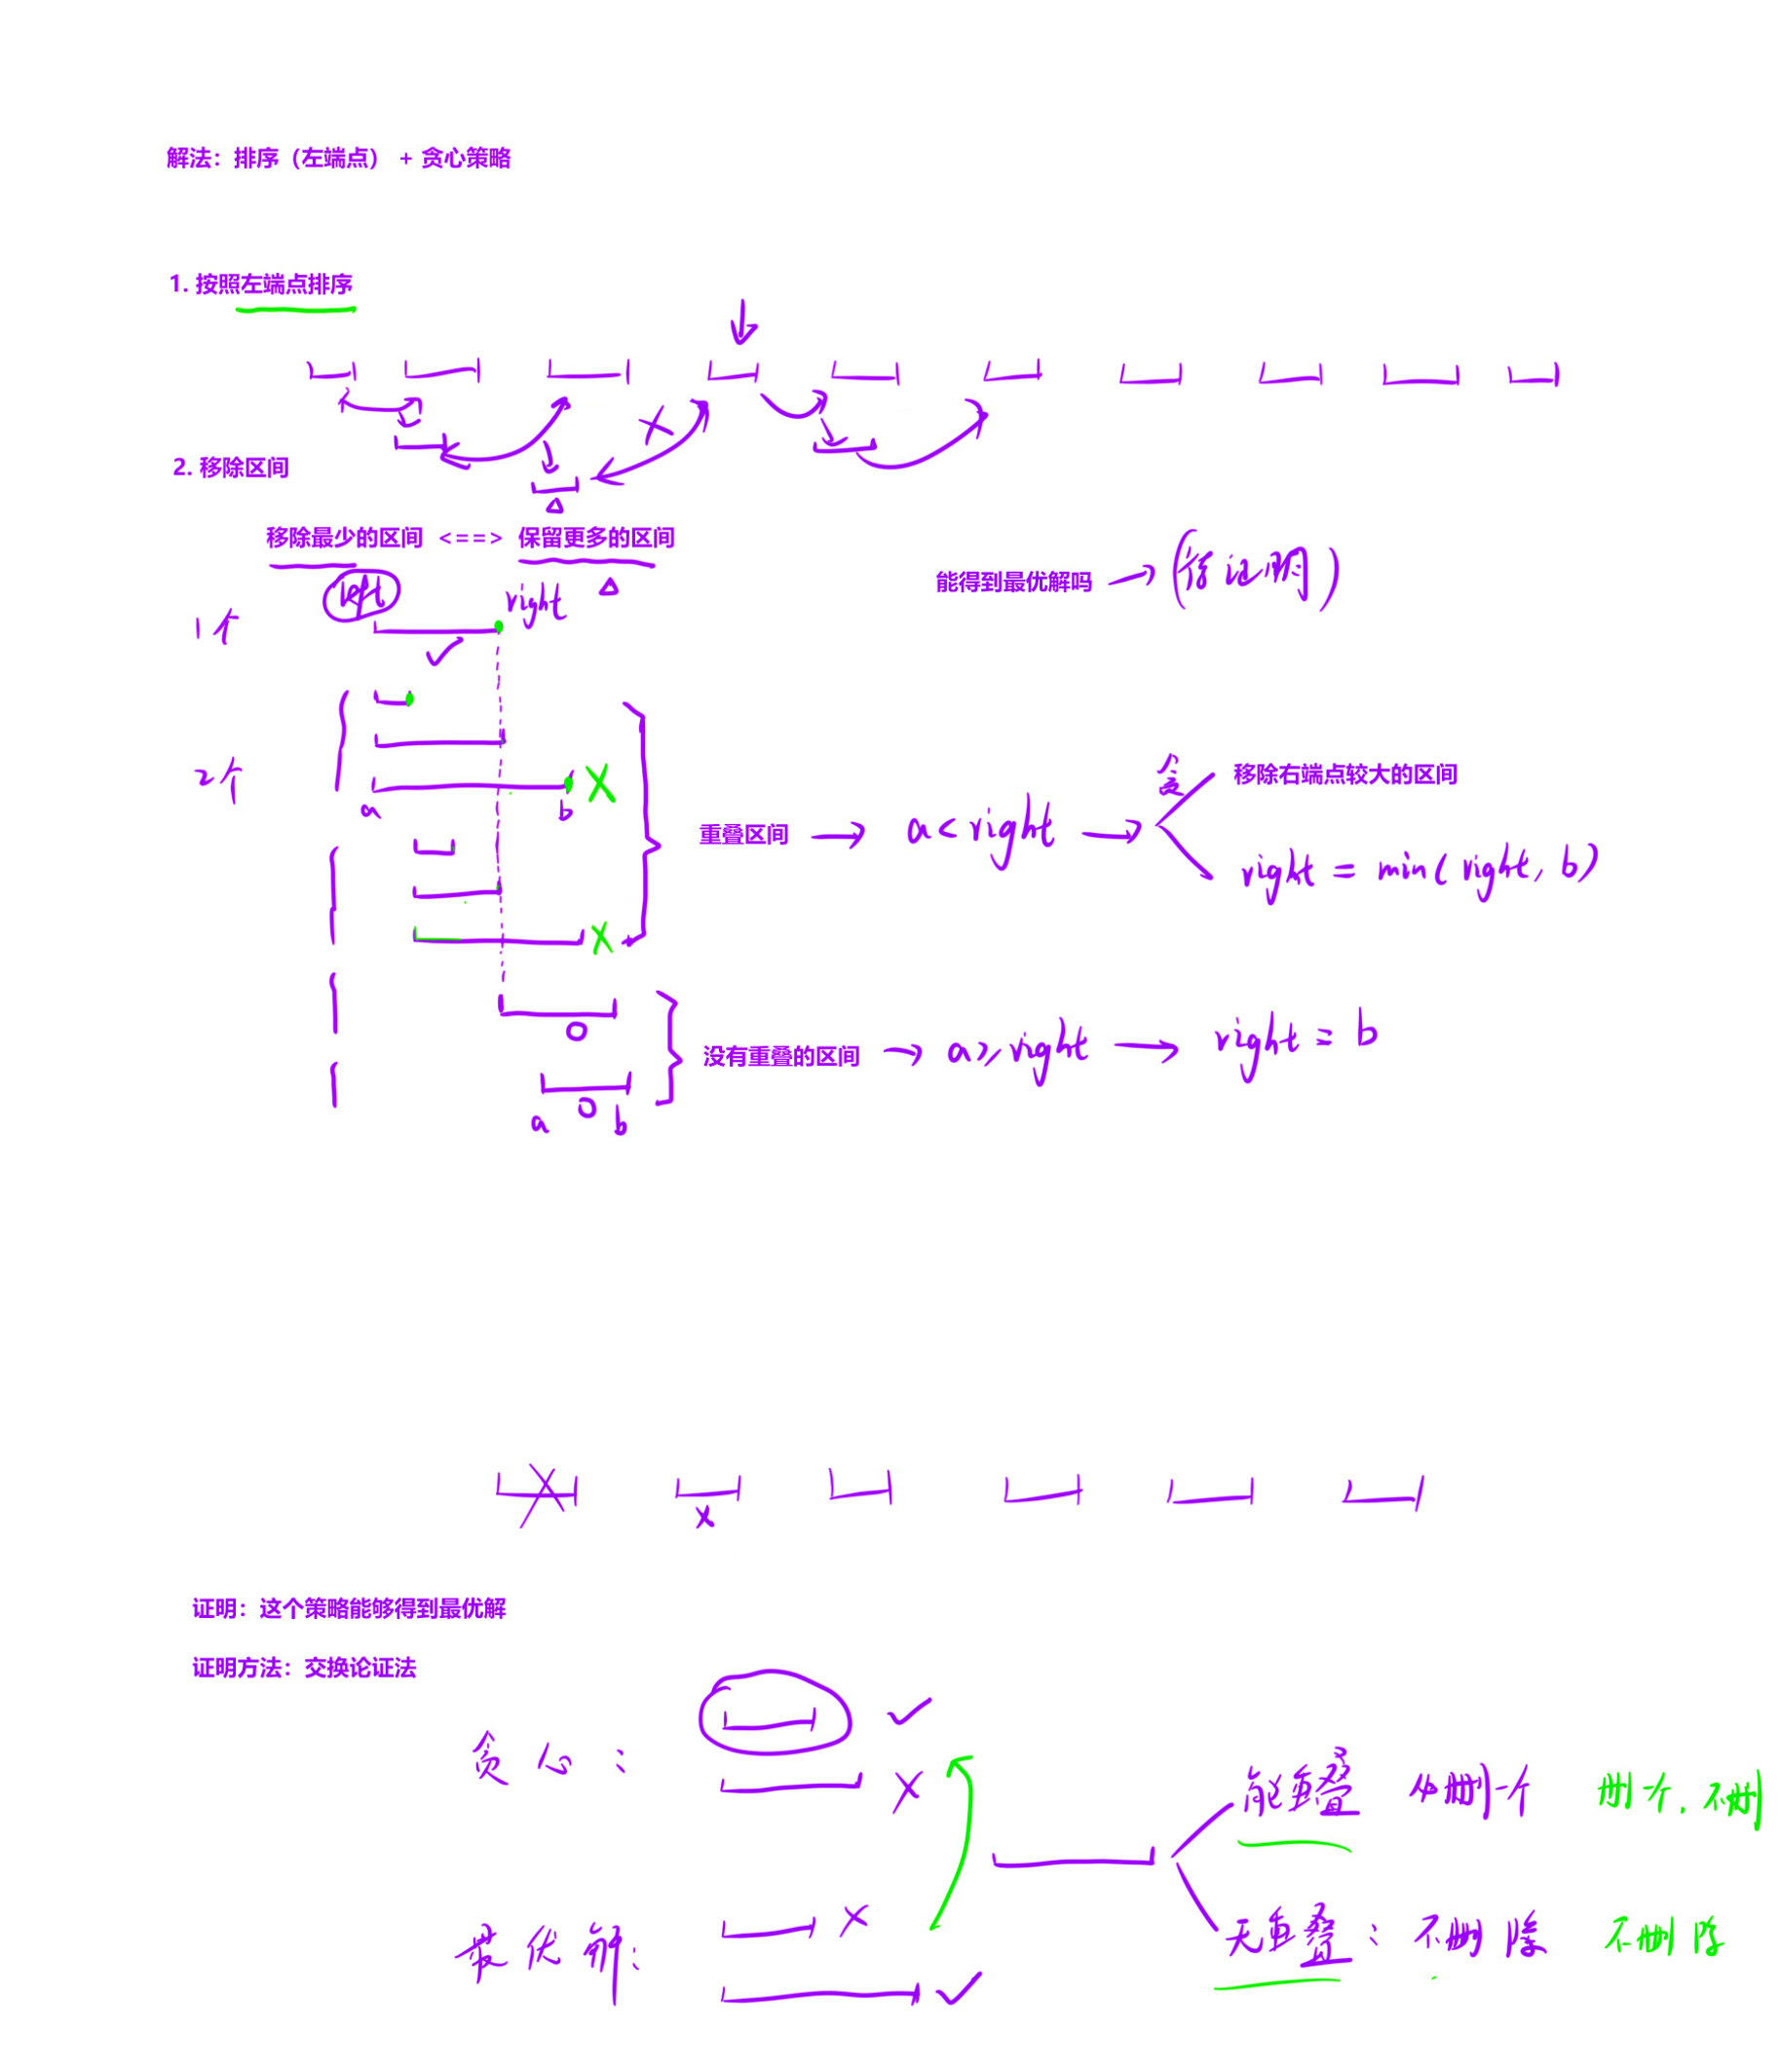 解法：排序（左端点） + 贪心策略
1. 按照左端点排序
2. 移除区间
移除最少的区间 <==> 保留更多的区间
能得到最优解吗 → (待证明)
left right
1个
2个
a b
重叠区间 → a<right →
贪
移除右端点较大的区间
right = min(right, b)
没有重叠的区间 → a≥right → right = b
a b
证明：这个策略能够得到最优解
证明方法：交换论证法
贪心：
能重叠 必删一个 删一个，不删
最优解：
无重叠：不删除 不删除